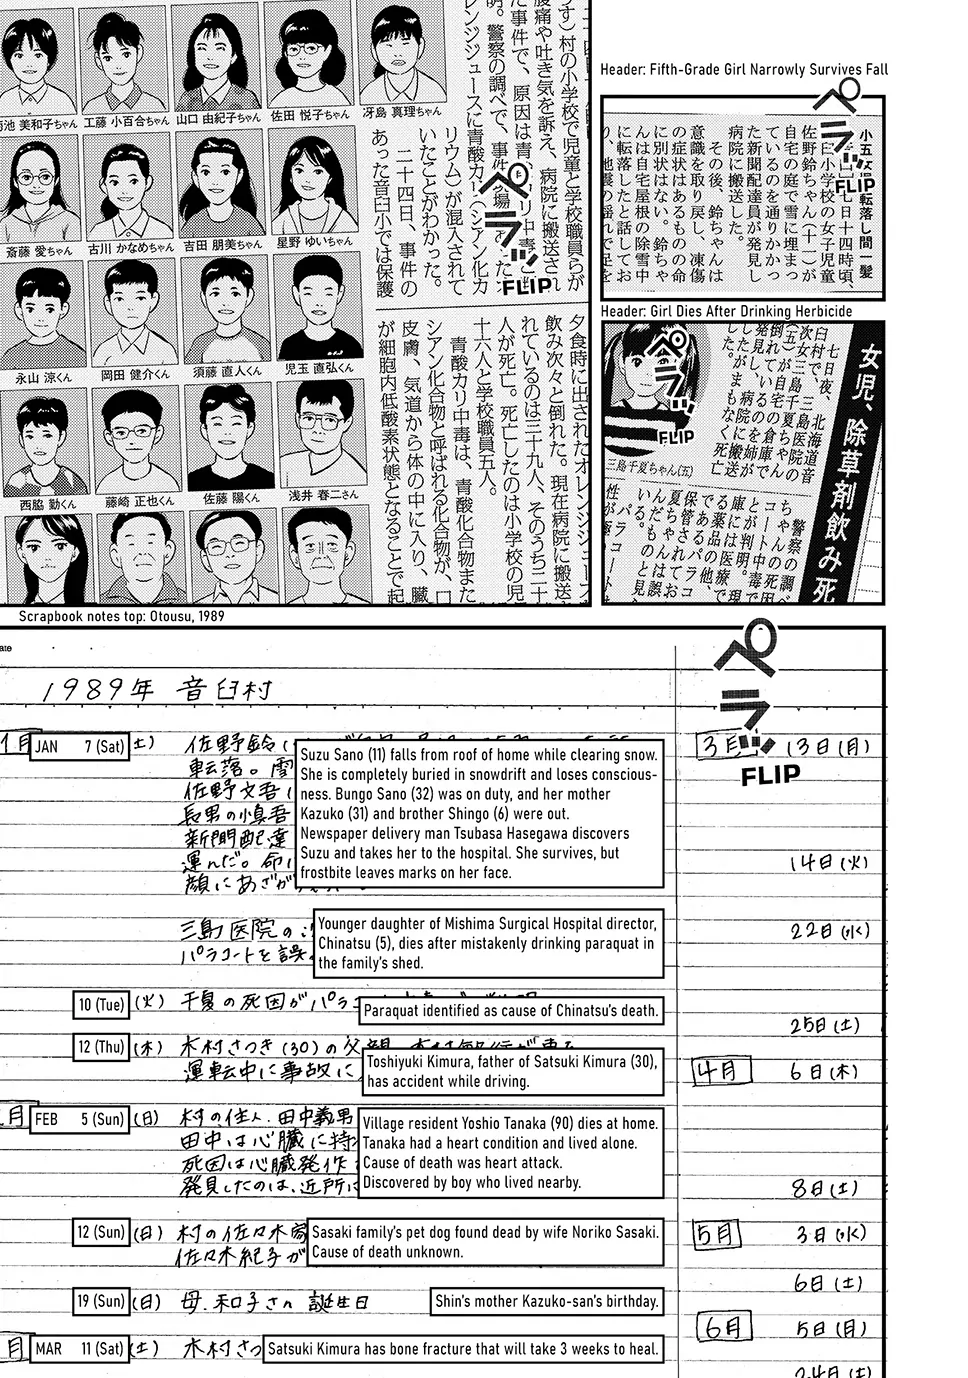 Header: Fifth-Grade Girl Narrowly Survives Fall
菊池 美和子ちゃん
工藤 小百合ちゃん
山口 由紀子ちゃん
佐田 悦子ちゃん
冴島 真理ちゃん
斎藤 愛ちゃん
古川 かなめちゃん
吉田 朋美ちゃん
星野 ゆいちゃん
永山 涼くん
岡田 健介くん
須藤 直人くん
児玉 直弘くん
西脇 勤くん
藤崎 正也くん
佐藤 陽くん
浅井 春二さん
うす）村の小学校で児童と学校職員らが
腹痛や吐き気を訴え、病院に搬送され
た事件で、原因は青
明。警察の調べで、事件
レンジジュースに青酸カリ（シアン化カ
リウム）が混入されて
いたことがわかった。
二十四日、事件の
あった音臼小では保護
夕食時に出されたオレンジジュース
飲み次々と倒れた。現在病院に搬送
れているのは三十九人、そのうち二十
人が死亡。死亡したのは小学校の児
十六人と学校職員五人。
青酸カリ中毒は、青酸化合物また
シアン化合物と呼ばれる化合物が、口
皮膚、気道から体の中に入り、臓
が細胞内低酸素状態となることで起
ペラッ
FLIP
小五女
転落し間一髪
七日十四時頃、
臼小学校の女子児童
佐野鈴ちゃん（十一）が
自宅の庭で雪に埋まっ
ているのを通りかかっ
た新聞配達員が発見し
病院に搬送した。
その後、鈴ちゃんは
意識を取り戻し、凍傷
の症状はあるものの命
に別状はない。鈴ちゃ
んは自宅屋根の除雪中
に転落したと話してお
り、地震の揺れで足を
ペラッ
FLIP
Header: Girl Dies After Drinking Herbicide
女児、除草剤飲み死
七日夜、北海道音
臼村で、三島医院の
次女・三島千夏ちゃん
（五）が自宅の倉庫で
倒れているのを姉が
発見し、病院に搬送
したがまもなく死亡
した。
三島千夏ちゃん（五）
警察の調べ
ちゃんの死因
コート中毒で
とが判明。現
庫には医療で
る薬品の他、
であるパラコ
保管されてお
夏ちゃんは誤
んだものと見
いる。
パラコート
ペラッ
FLIP
Scrapbook notes top: Otousu, 1989
ate
1989年 音臼村
1月
JAN 7 (Sat)
土)
佐野鈴(
転落。雪
佐野文吾(
長男の慎吾
新聞配達
運んだ。命に
顔にあざが
Suzu Sano (11) falls from roof of home while clearing snow.
She is completely buried in snowdrift and loses conscious-
ness. Bungo Sano (32) was on duty, and her mother
Kazuko (31) and brother Shingo (6) were out.
Newspaper delivery man Tsubasa Hasegawa discovers
Suzu and takes her to the hospital. She survives, but
frostbite leaves marks on her face.
三島医院の
パラコートを誤
Younger daughter of Mishima Surgical Hospital director,
Chinatsu (5), dies after mistakenly drinking paraquat in
the family's shed.
10 (Tue)
(火)
千夏の死因がパラコ
Paraquat identified as cause of Chinatsu's death.
12 (Thu)
(木)
木村さつき(30)の父親
運転中に事故に
Toshiyuki Kimura, father of Satsuki Kimura (30),
has accident while driving.
月
FEB 5 (Sun)
(日)
村の住人、田中義男
田中は心臓に持
死因は心臓発作
発見したのは、近所に
Village resident Yoshio Tanaka (90) dies at home.
Tanaka had a heart condition and lived alone.
Cause of death was heart attack.
Discovered by boy who lived nearby.
12 (Sun)
(日)
村の佐々木家
佐々木紀子が
Sasaki family's pet dog found dead by wife Noriko Sasaki.
Cause of death unknown.
19 (Sun)
(日)
母、和子さん 誕生日
Shin's mother Kazuko-san's birthday.
月
MAR 11 (Sat)
(土)
木村さつ
Satsuki Kimura has bone fracture that will take 3 weeks to heal.
ペラッ
FLIP
3月
13日(月)
14日(火)
22日(水)
25日(土)
4月
6日(木)
8日(土)
5月
3日(水)
6日(土)
6月
5日(月)
24日(土)